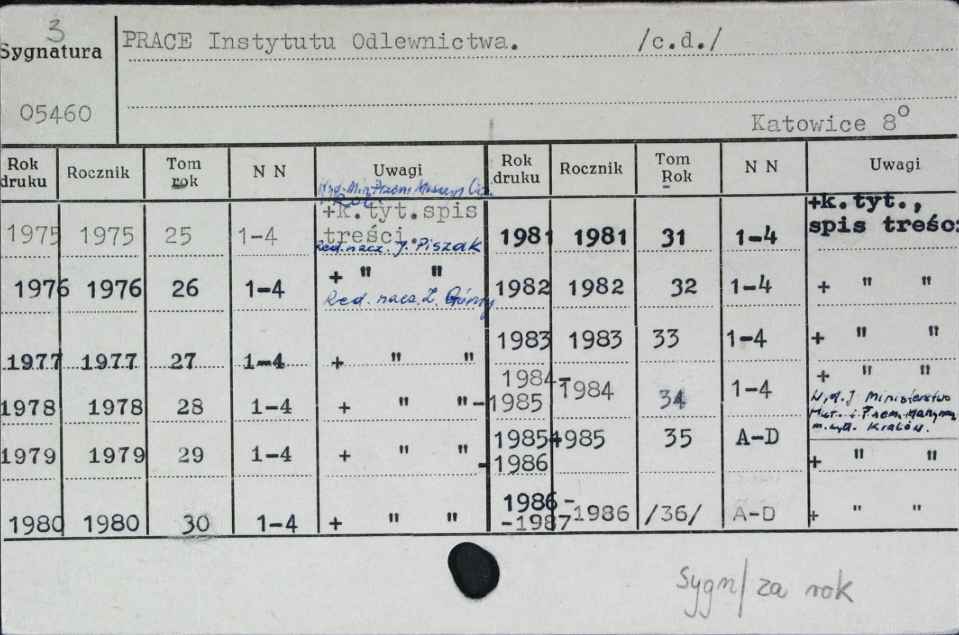 3
Sygnatura PRACE Instytutu Odlewnictwa. /c.d./
05460
Katowice 8°
Rok druku Rocznik Tom rok N N Uwagi Rok druku Rocznik Tom Rok N N Uwagi
1975 1975 25 1-4 +k.tyt.spis treści 1981 1981 31 1-4 +k.tyt., spis treści
Red. nacz. J. Piszak
1976 1976 26 1-4 + " " 1982 1982 32 1-4 + " "
Red. nacz. Z. Górny
1977 1977 27 1-4 + " " 1983 1983 33 1-4 + " "
1978 1978 28 1-4 + " " 1984-1985 1984 34 1-4 + " "
Ministerstwo
Hut. i Przem. Maszyn.
m. wyd. Kraków.
1979 1979 29 1-4 + " " 1985-1986 1985 35 A-D + " "
1980 1980 30 1-4 + " " 1986-1987 1986 /36/ A-D + " "
Sygn/ za rok